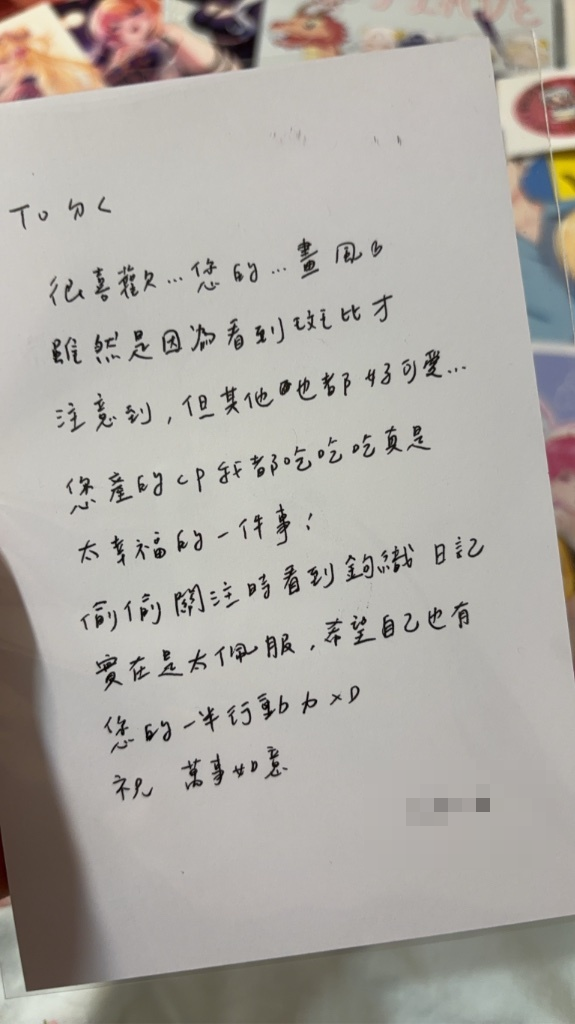 To ㄉく
很喜歡...您的...畫風
雖然是因為看到玟比才
注意到,但其他也都好可愛...
您產的cp我都吃吃吃真是
太幸福的一件事!
偷偷關注時看到鉤織日記
實在是太佩服,希望自己也有
您的一半行動力xD
祝 萬事如意